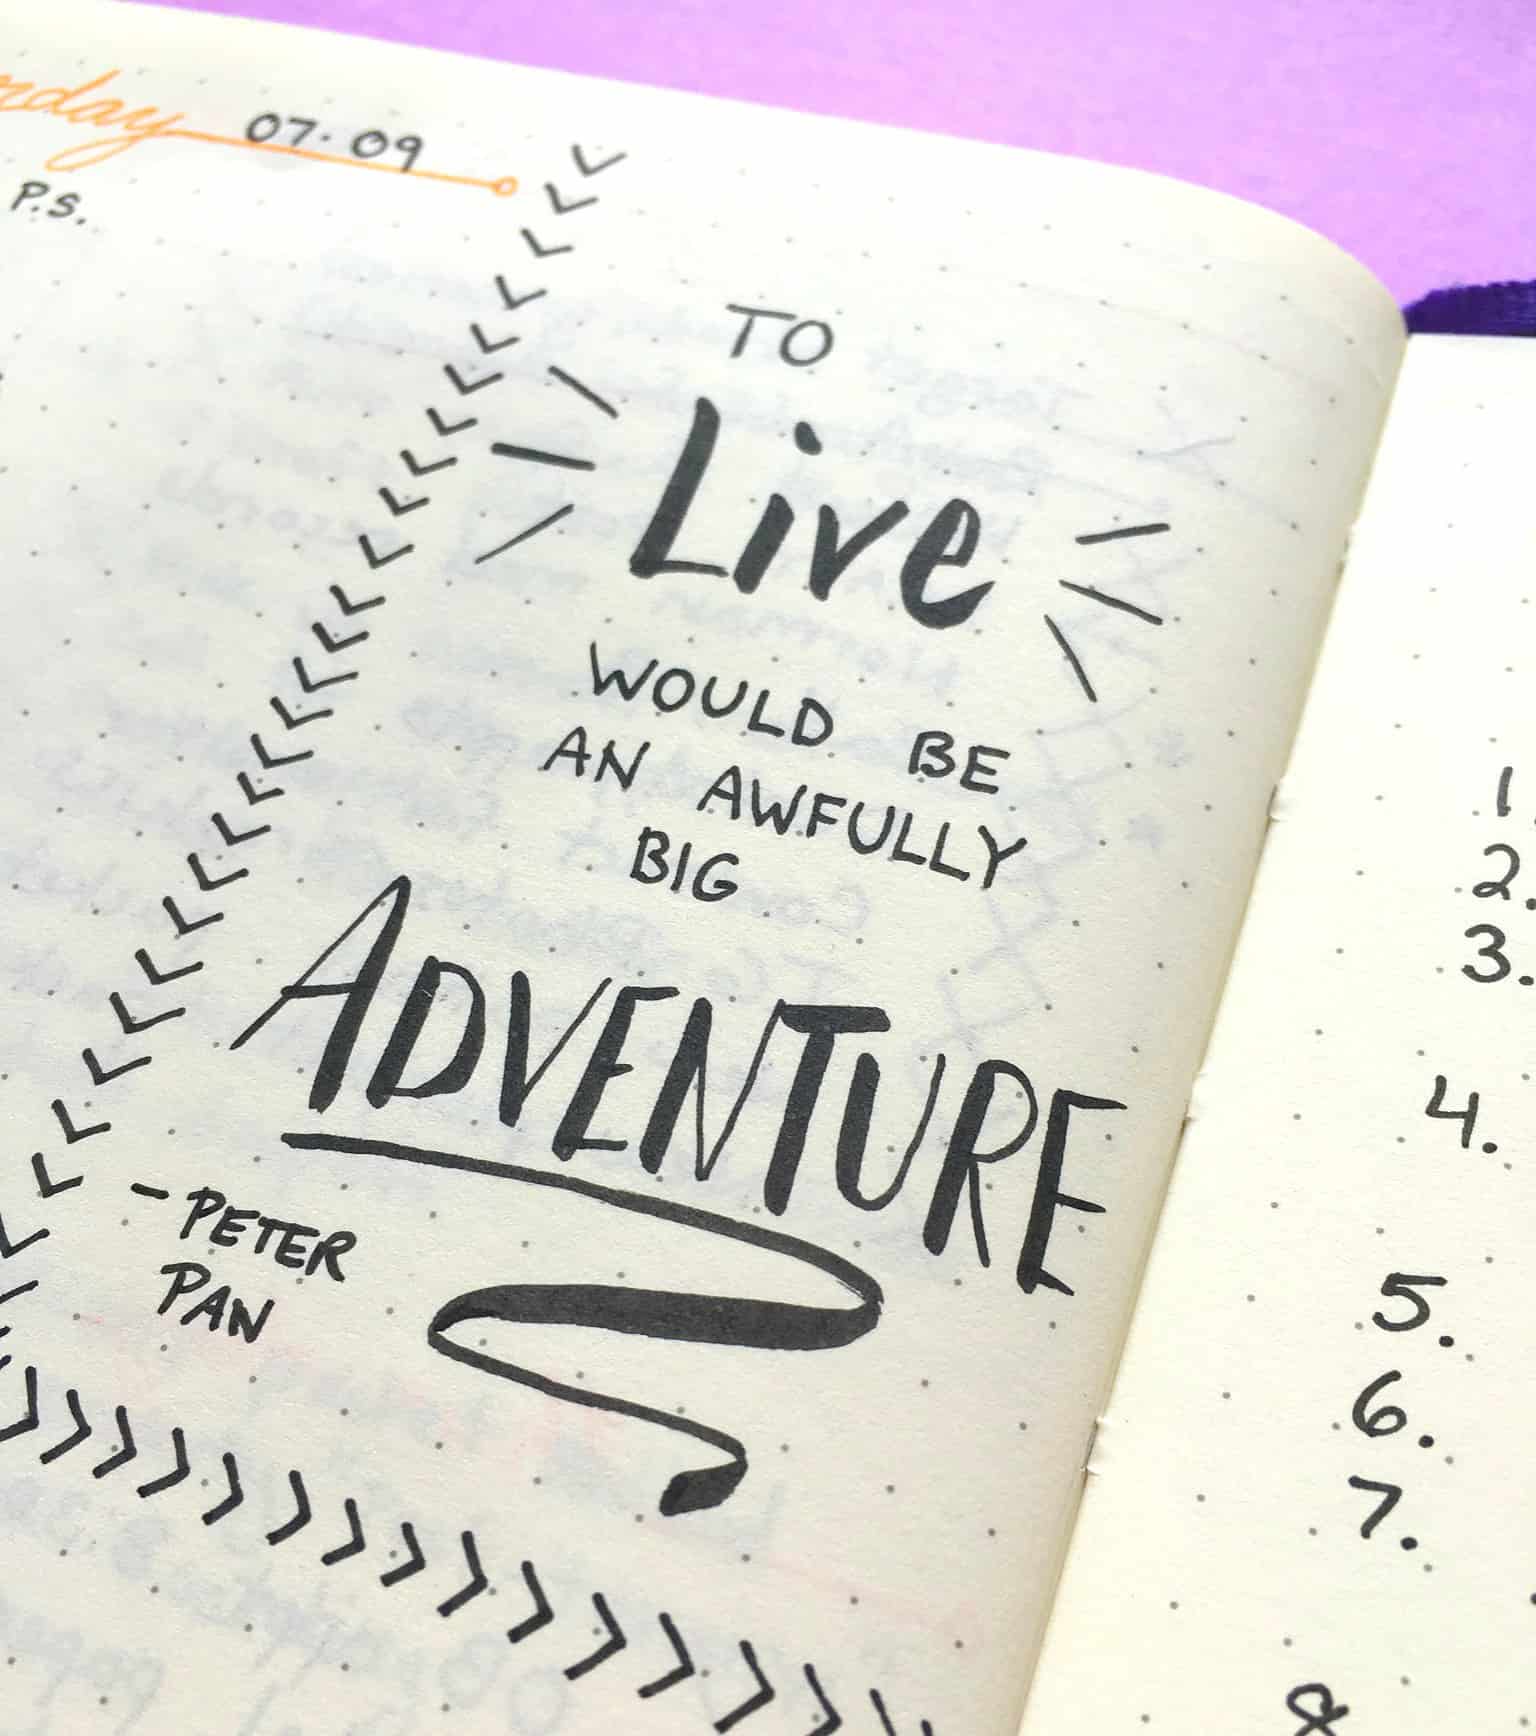 07.09
P.S.
TO
Live
WOULD BE
AN AWFULLY
BIG
ADVENTURE
- PETER
PAN
1.
2.
3.
4.
5.
6.
7.
8